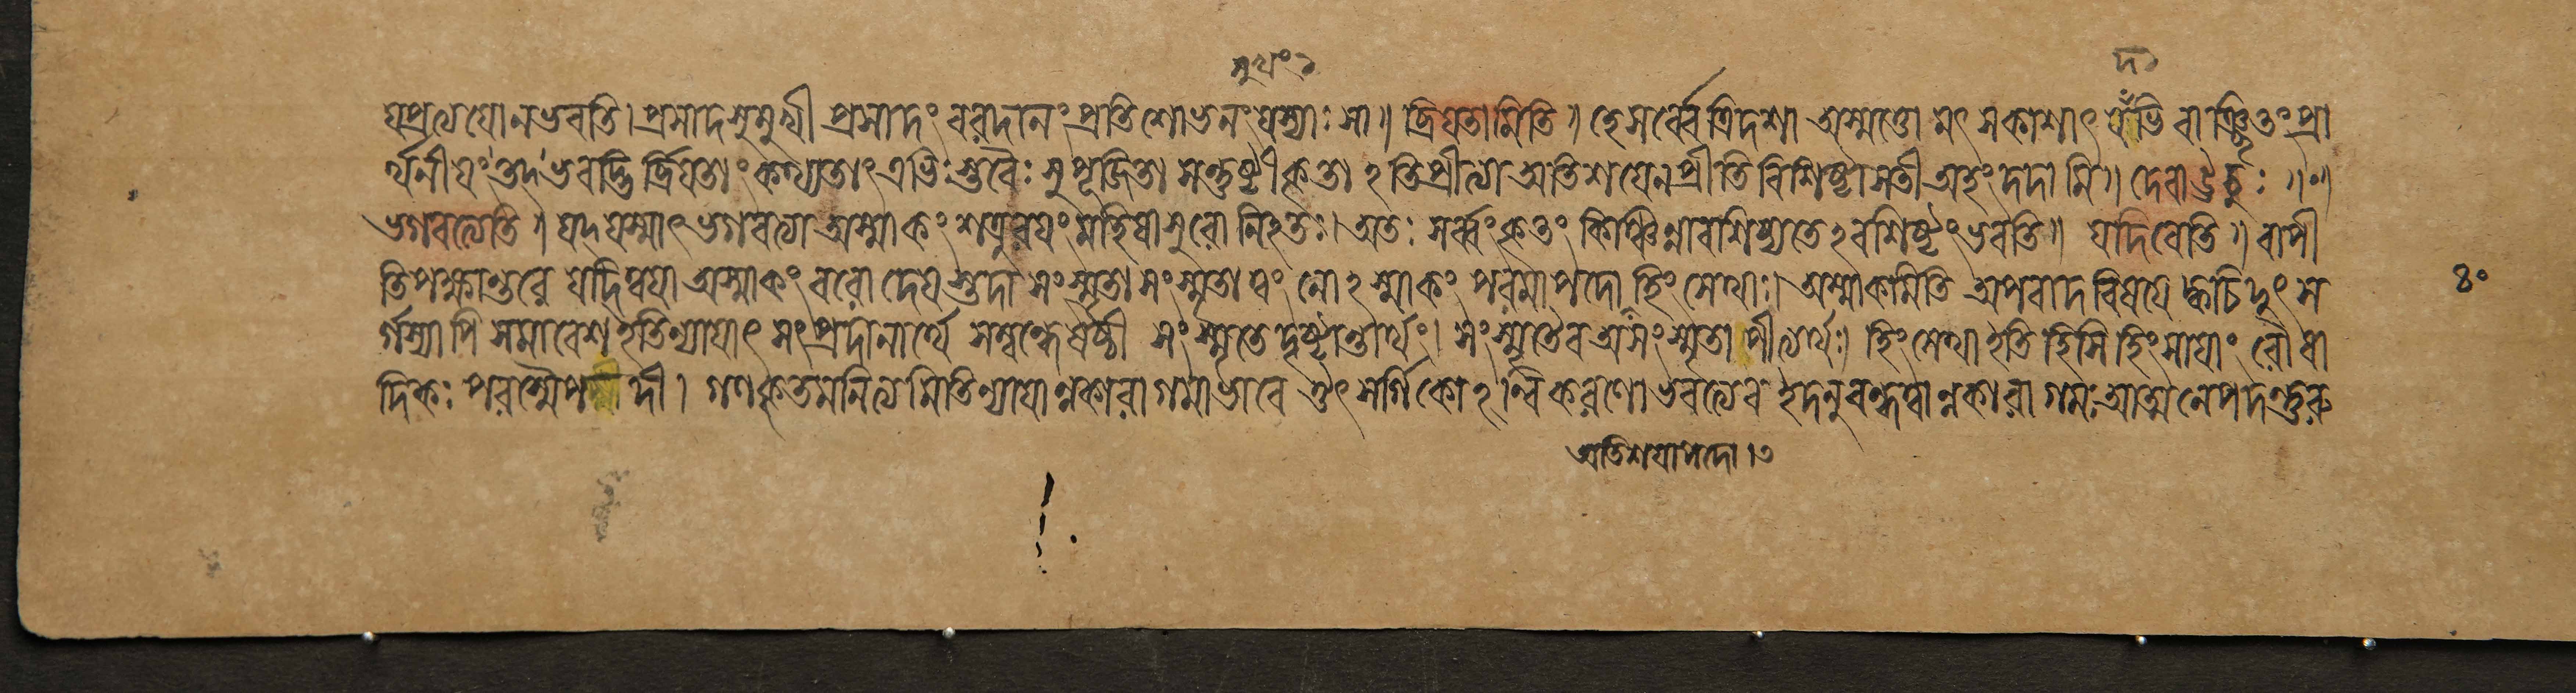 সুখং১
দ১
যপ্রত্যযোনভবতি। প্রসাদসুমুখী প্রসাদং বরদানং প্রতিশোভনংযস্যাঃ সা॥ ব্রিযতামিতি॥ হেসর্ব্বেত্রিদশা অস্মত্তো মৎ সকাশাৎ যঁভি বাঞ্ছিতং প্রা
র্থনীযং তদ্ভবদ্ভি র্ব্রিযতাং কথ্যতাং এভিঃ স্তবৈঃ সুপূজিতা সন্তুষ্টীকৃতা ইতিপ্রীত্যা অতিশযেনপ্রীতি বিশিষ্টাসতী অহং দদামি॥ দেবাঊচুঃ॥০॥
ভগবত্যেতি॥ যদ যস্মাৎ ভগবত্যা অস্মাকং শত্রুরযং মহিষাসুরো নিহতঃ। অতঃ সর্ব্বং কৃতং কিঞ্চিন্নাবশিষ্যতেহবশিষ্টংভবতি॥ যদিবেতি॥ বাপী
তিপক্ষান্তরে যদিত্বযা অস্মাকং বরো দেযস্তদা সংস্মৃতা সংস্মৃতা ত্বং নোহস্মাকং পরমাপদো হিংসেথাঃ। অস্মাকমিতি অপবাদবিষযে ক্বচিদুৎস
র্গস্যাপি সমাবেশ ইতিন্যাযাৎ সংপ্রদানার্থে সম্বন্ধেষষ্ঠী সংস্মৃতে দৃষ্টান্তার্থং। সংস্মৃতেব অসংস্মৃতা পীত্যর্থঃ। হিংসেথা ইতি হিসি হিংসাযাং রৌধা
দিকঃ পরস্মৈপদী। গণকৃতমনিত্যমিতিন্যাযান্নকারাগমাভাবে ঔৎসর্গিকোহন্বিকরণো ভবত্যেব ইদনুবন্ধত্বান্নকারাগমঃ আত্মনেপদন্তুরু
অতিশযাপদো।৩
৪০